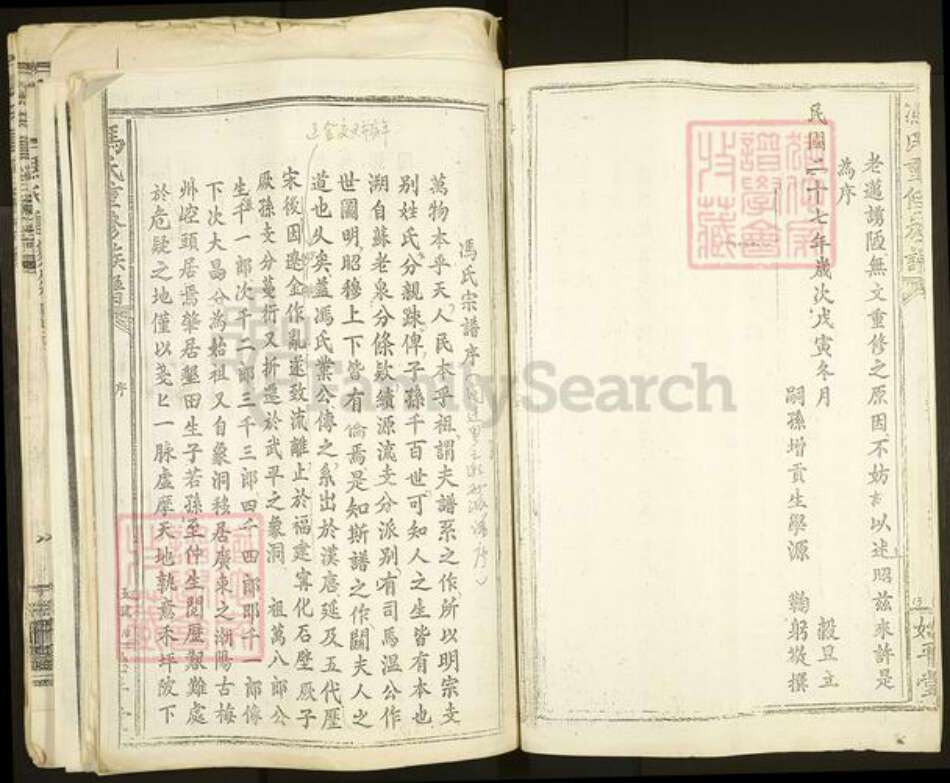 老邁謭陋無文重修之原因不妨
以述昭茲來許是
為序
民國二十七年歲次戊寅冬月 穀旦立
嗣孫增貢生學源 鞠躬敬撰
馮氏宗譜序
萬物本乎天人民本乎祖謂夫譜系之作所以明宗支
別姓氏分親踈俾子孫千百世可知人之生皆有本也
溯自蘇老泉分條欵績源流支分派別有司馬溫公作
世圖明昭穆上下皆有倫焉是知斯譜之作關夫人之
道也久矣蓋馮氏業公傳之系出於漢唐延及五代歷
宋後因遼金作亂遂致流離止於福建寧化石壁厥子
厥孫支分蔓衍又折遷於武平之象洞 祖萬八郎公
生千一郎次千二郎三千三郎四千四郎即千一郎像
下次大昌分為始祖又自象洞移居廣東之潮陽古梅
州崆頭居焉肇居墾田生子若孫至仲生閱歷艱難處
於危疑之地僅以戔匕一脉虛摩天地執耒禾坪陂下
馮氏重修族譜
序
馮氏重修族譜
始平堂
FamilySearch